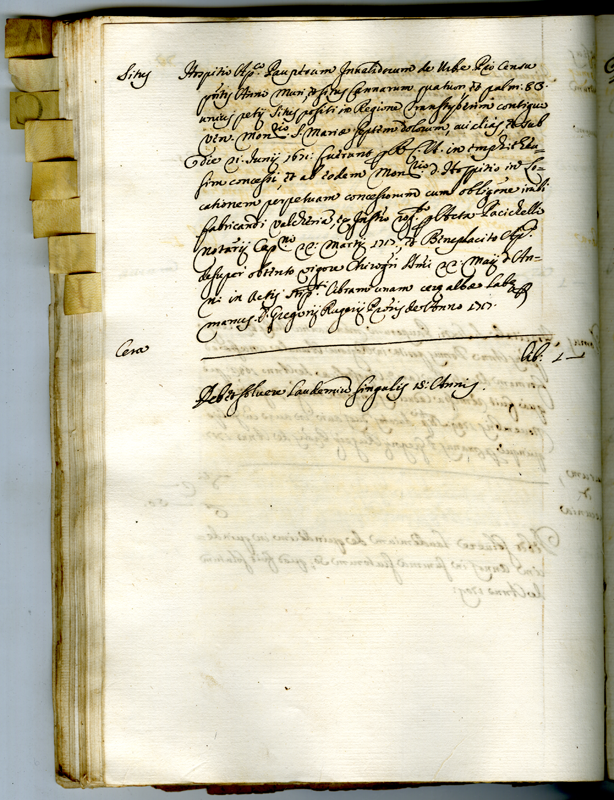 Situs
Hospitio Ap.co Pauperum Invalidorum de Urbe Pro Censu
Anno Mun. Situs Cannarum quatuor et palm: 83
unius petij Situs positi in Regione Transtyberim contiguo
Ven. Mon.rio S. Mariæ septem dolorum, ac alias, et sub
die 21 Junij 1671 fuerunt in emphiteu
sim concessi, et ab eodem Mon.rio d. Hospitio in Lo-
cationem perpetuam concessionum cum oblig.ne
fabricandi ex Instro Acta Pacichelli
Notarij Cap.ni 22 Martij 1717, et Beneplacito Ap.
desuper obtento vigore Chirogri SSmi 22 Maij d. An-
ni in Actis libram unam ceræ albæ
manus D. Gregorij Rugerij de Anno 1717
Cera
lib: 1 —
Debet solvere Laudemium singulis 15: Annis.